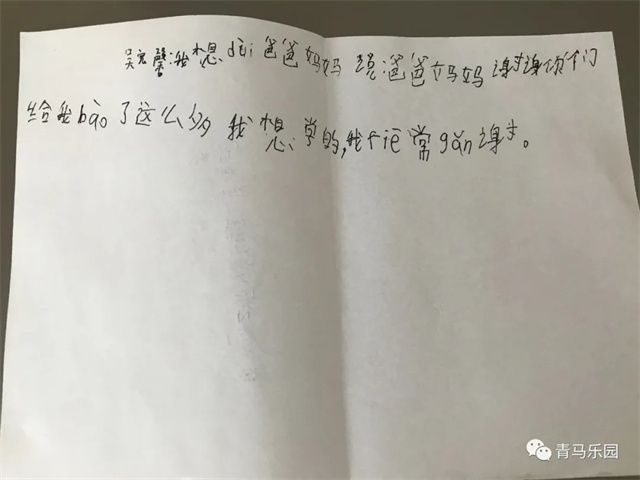 吴宏馨:我想dèi爸爸妈妈说:爸爸妈妈谢谢你们
给我bào了这么多我想学的,我fiē常gǎn谢。
青马乐园